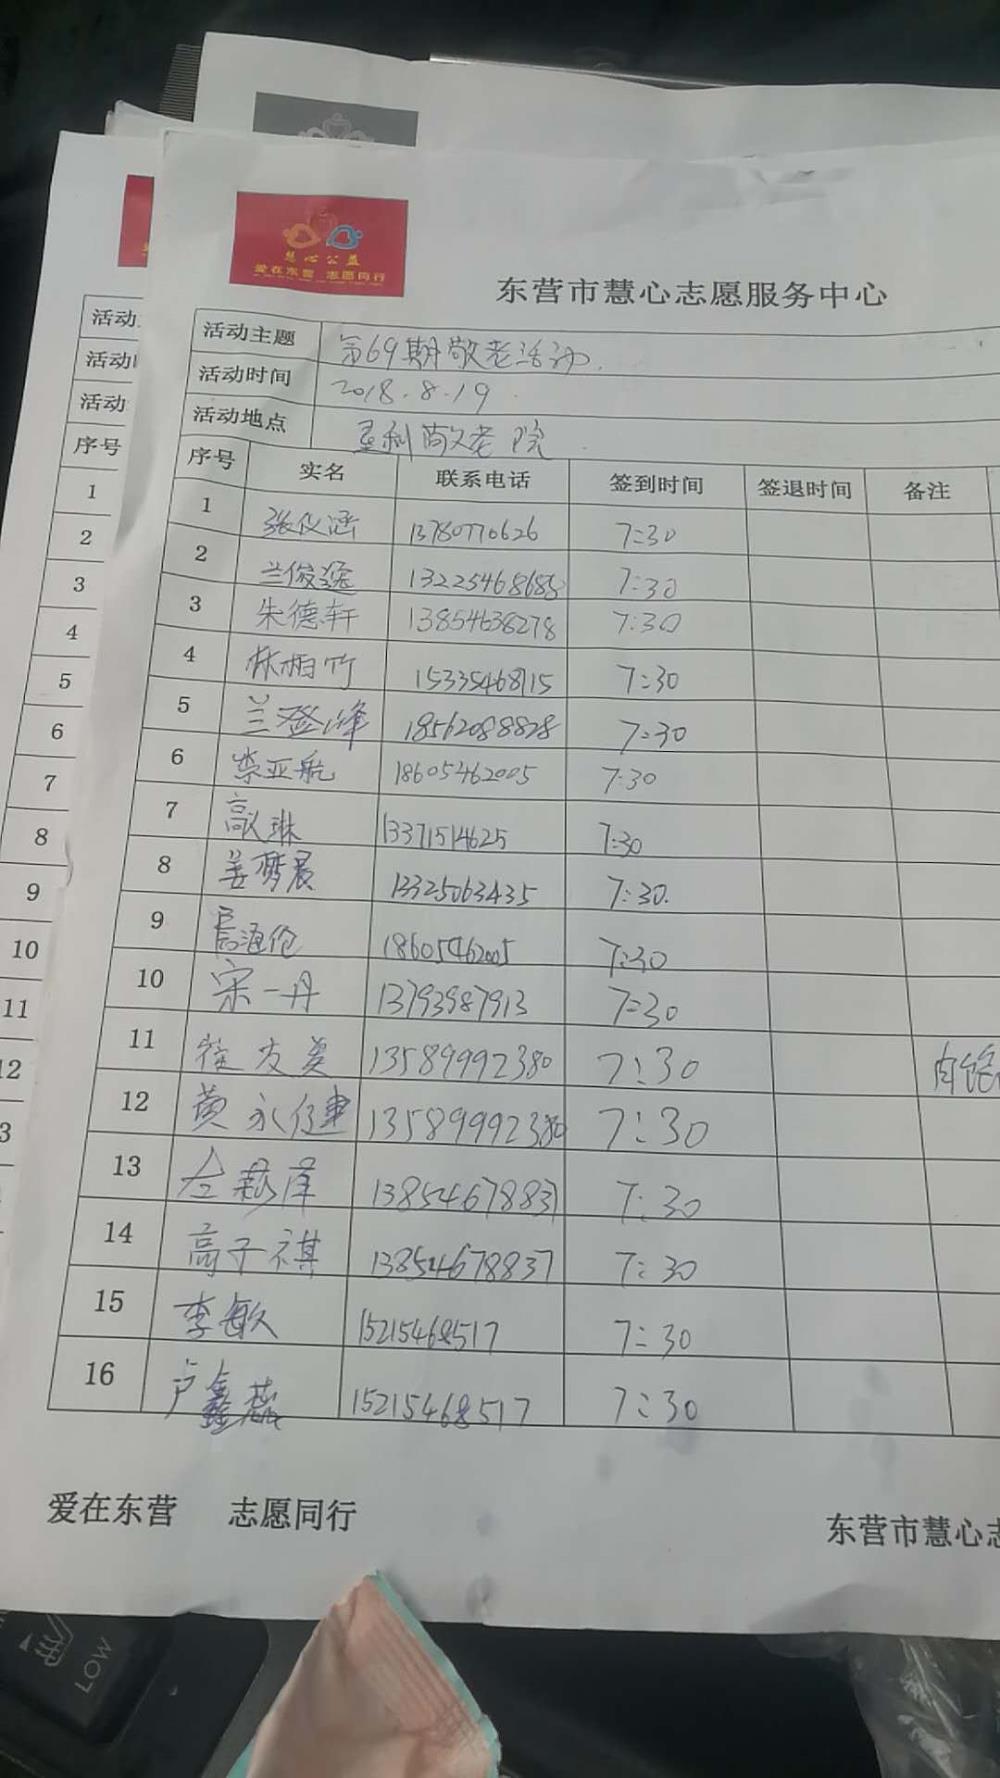 慧心公益
爱在东营 志愿同行
东营市慧心志愿服务中心
活动主题 第69期敬老活动.
活动时间 2018.8.19
活动地点 垦利敬老院.
序号 实名 联系电话 签到时间 签退时间 备注
1 张仪涵 13780770626 7:30
2 兰俊逸 13225468688 7:30
3 朱德轩 13854638278 7:30
4 林柏竹 15335468115 7:30
5 兰登峰 18562088828 7:30
6 柴亚航 18605462005 7:30
7 高琳 13371514625 7:30
8 姜梦晨 13325063435 7:30.
9 海伦 18605462005 7:30
10 宋一丹 13793987913 7:30
11 友美 13589992380 7:30
12 黄永健 13589992380 7:30
13 泽 13854678837 7:30
14 高子祺 13854678837 7:30
15 李敏 15215468517 7:30
16 卢鑫蕊 15215468517 7:30
爱在东营 志愿同行
东营市慧心志
活动
活动
活动
序号
1
2
3
4
5
6
7
8
9
10
11
12
3
LOW